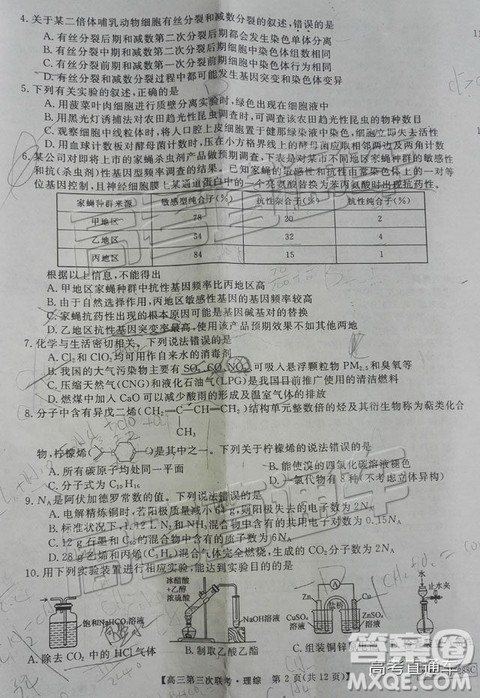 4.关于某二倍体哺乳动物细胞有丝分裂和减数分裂的叙述,错误的是
A.有丝分裂后期和减数第二次分裂后期都会发生染色单体分离
B.有丝分裂中期和减数第二次分裂中期染色体组数相同
C.有丝分裂前期和减数第一次分裂前期染色体行为不同
D.有丝分裂和减数分裂过程中都可能发生基因突变和染色体变异
5.下列有关实验的叙述,正确的是
A.用菠菜叶肉细胞进行质壁分离实验时,绿色出现在细胞液中
B.用黑光灯诱捕法对农田趋光性昆虫进行调查,可调查该农田趋光性昆虫的物种数目
C.观察细胞中线粒体时,将人口腔上皮细胞置于健那绿染液中染色,细胞立即失去活性
D.用血球计数板对酵母菌计数时,压在小方格界线上的酵母菌应取相邻两边及两角计数
6.某公司对即将上市的家蝇杀虫剂产品做预期调查,下表是对某市不同地区家蝇种群的敏感性
和抗(杀虫剂)性基因型频率调查的结果。已知家蝇的敏感性和抗性由常染色体上的一对等
位基因控制,且神经细胞膜上某通道蛋白中的一个亮氨酸替换为苯丙氨酸时出现抗药性。
家蝇种群来源 敏感型纯合子(%) 抗性杂合子(%) 抗性纯合子(%)
甲地区 78 20 2
乙地区 64 32 4
丙地区 84 15 1
根据以上信息,不能得出
A.甲地区家蝇种群中抗性基因频率比丙地区高
B.由于自然选择作用,丙地区敏感性基因的基因频率较高
C.家蝇抗药性出现的根本原因可能是基因碱基对的替换
D.乙地区抗性基因突变率最高,使用该产品预期效果不如其他两地
7.化学与生活密切相关。下列说法错误的是
A.Cl₂和ClO₂均可用作自来水的消毒剂
B.我国的大气污染物主要有SO₂、CO、NO₂、可吸入悬浮颗粒物PM₂.₅和臭氧等
C.压缩天然气(CNG)和液化石油气(LPG)是我国目前推广使用的清洁燃料
D.燃煤中加入CaO可以减少酸雨的形成及温室气体的排放
8.分子中含有异戊二烯(CH₂=C-CH=CH₂)结构单元整数倍的烃及其衍生物称为萜类化合
物,柠檬烯是其中之一。下列关于柠檬烯的说法错误的是
A.所有碳原子均处同一平面
B.能使溴的四氯化碳溶液褪色
C.分子式为C₁₀H₁₆
D.一氯代物有8种(不考虑立体异构)
9.Nᴀ是阿伏加德罗常数的值。下列说法错误的是
B.标准状况下,1.12L N₂和H₂
C.12g石墨和C₆₀
D.28g乙烯和丙烯(C₃H₆)混合气体完全燃烧,生成的CO₂分子数为2Nᴀ
10.用下列实验装置进行相应实验,能达到实验目的的是
饱和NaHCO₃溶液
冰醋酸
+乙醇
+浓硫酸
NaOH溶液
盐桥
CuSO₄
溶液
止水夹
A.除去CO₂中的HCl气体
B.制取乙酸乙酯
C.组装铜锌
【高三第三次联考·理综 第2页(共12页)】
高考直通车
答案圈